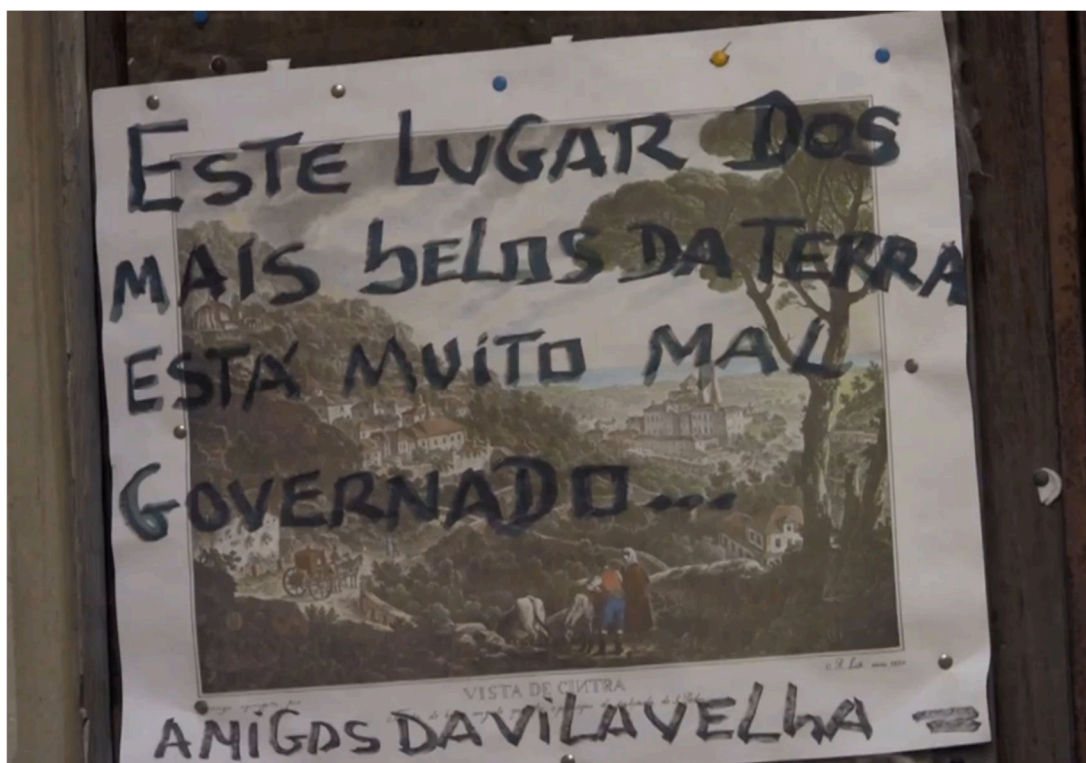 ESTE LUGAR DOS
MAIS bELOS DA TERRA
ESTÁ MUiTO MAL
GOVERNADO...
VISTA DE CINTRA
AMiGOS DA ViLA VELhA